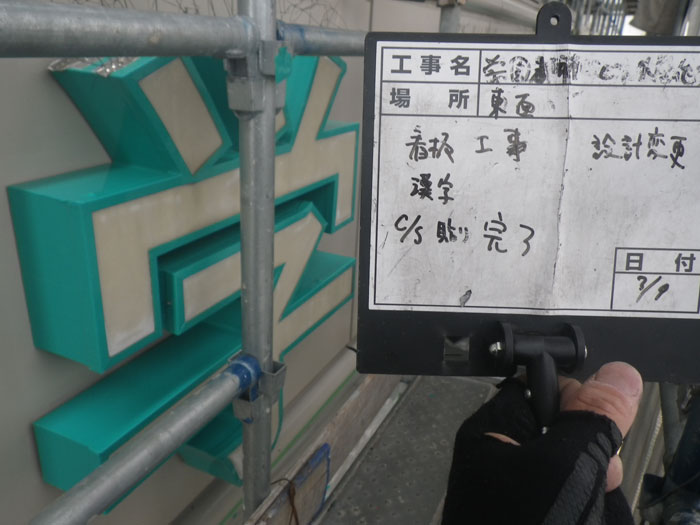 工事名
場所 東面
看板 工事 設計変更
漢字
C/S 貼り 完了
日付
7/9
学